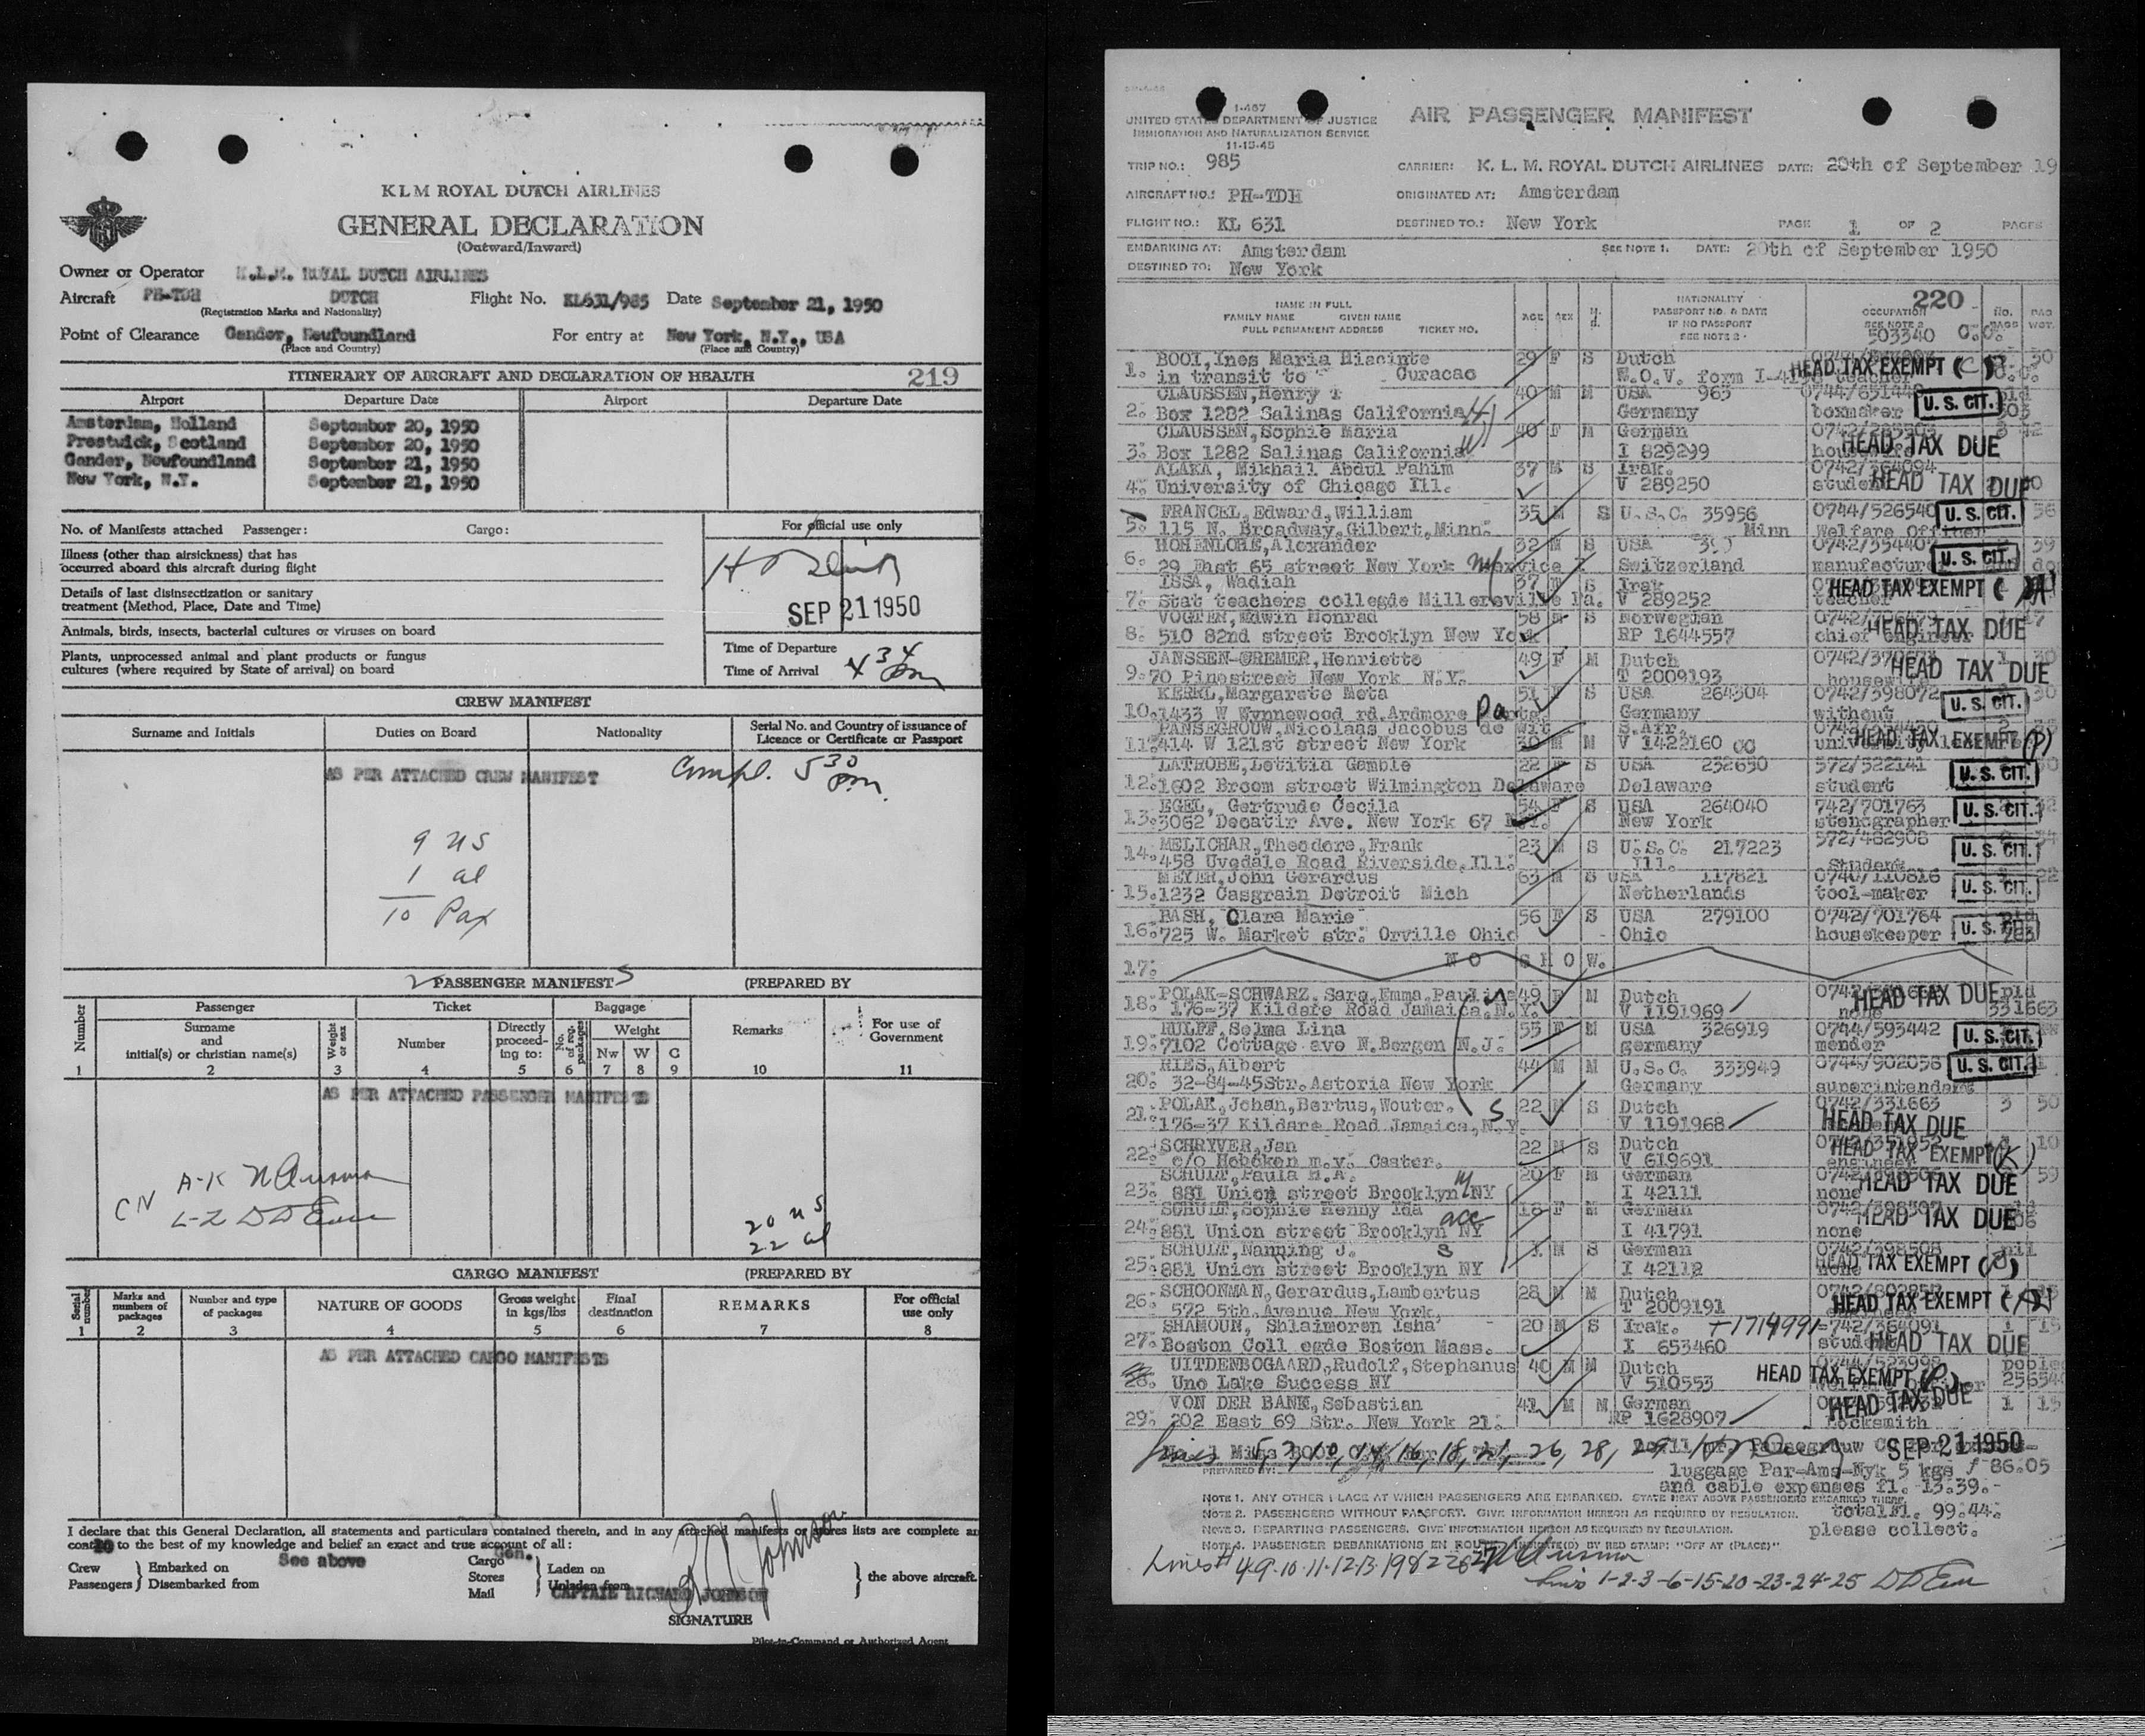 KLM ROYAL DUTCH AIRLINES
GENERAL DECLARATION
(Outward/Inward)
Owner or Operator K.L.M. ROYAL DUTCH AIRLINES
Aircraft PH-TDH DUTCH Flight No. KL631/985 Date September 21, 1950
(Registration Marks and Nationality)
Point of Clearance Gander, Newfoundland For entry at New York, N.Y., USA
(Place and Country) (Place and Country)
ITINERARY OF AIRCRAFT AND DECLARATION OF HEALTH 219
Airport Departure Date Airport Departure Date
Amsterdam, Holland September 20, 1950
Prestwick, Scotland September 20, 1950
Gander, Newfoundland September 21, 1950
New York, N.Y. September 21, 1950
No. of Manifests attached Passenger: Cargo: For official use only
Illness (other than airsickness) that has
occurred aboard this aircraft during flight
Details of last disinsectization or sanitary
treatment (Method, Place, Date and Time)
SEP 21 1950
Animals, birds, insects, bacterial cultures or viruses on board
Plants, unprocessed animal and plant products or fungus
cultures (where required by State of arrival) on board
Time of Departure
Time of Arrival 4 34 pm
CREW MANIFEST
Surname and Initials Duties on Board Nationality Serial No. and Country of issuance of
Licence or Certificate or Passport
AS PER ATTACHED CREW MANIFEST Compl. 5 30 pm.
9 US
1 al
10 Pax
2 PASSENGER MANIFESTS (PREPARED BY
Number Passenger Ticket Baggage Remarks For use of
Government
Surname
and
initial(s) or christian name(s) Weight or sex Number Directly
proceed-
ing to: No. of reg. packages Weight
Nw W C
1 2 3 4 5 6 7 8 9 10 11
AS PER ATTACHED PASSENGER MANIFESTS
A-K
CN
L-Z
20 US
22 al
CARGO MANIFEST (PREPARED BY
Serial number Marks and
numbers of
packages Number and type
of packages NATURE OF GOODS Gross weight
in kgs/lbs Final
destination REMARKS For official
use only
1 2 3 4 5 6 7 8
AS PER ATTACHED CARGO MANIFESTS
I declare that this General Declaration, all statements and particulars contained therein, and in any attached manifests or stores lists are complete
to the best of my knowledge and belief an exact and true account of all:
Crew Embarked on See above Cargo Gen. Laden on
Passengers Disembarked from Stores Unladen from the above aircraft.
Mail CAPTAIN RICHARD JOHNSON
SIGNATURE
Pilot-in-Command or Authorized Agent
1-467
UNITED STATES DEPARTMENT OF JUSTICE AIR PASSENGER MANIFEST
IMMIGRATION AND NATURALIZATION SERVICE
11-13-45
TRIP NO.: 985 CARRIER: K. L. M. ROYAL DUTCH AIRLINES DATE: 20th of September 19
AIRCRAFT NO.: PH-TDH ORIGINATED AT: Amsterdam
FLIGHT NO.: KL 631 DESTINED TO.: New York PAGE 1 OF 2 PAGES
EMBARKING AT: Amsterdam SEE NOTE 1. DATE: 20th of September 1950
DESTINED TO: New York
220
NAME IN FULL
FAMILY NAME GIVEN NAME
FULL PERMANENT ADDRESS TICKET NO. AGE SEX NATIONALITY
PASSPORT NO. & DATE
IF NO PASSPORT
SEE NOTE 2 OCCUPATION
SEE NOTE 2 NO. BAGS
503340 C.C.
1. BOOI, Ines Maria Hiacinte 29 F S Dutch HEAD TAX EXEMPT 30
in transit to Curacao
2. CLAUSSEN, Henry T 40 M M USA 965 U. S. CIT.
Box 1282 Salinas California Germany boxmaker
3. CLAUSSEN, Sophie Maria 40 F M German HEAD TAX DUE
Box 1282 Salinas California I 829299
4. ALAKA, Mikhail Abdul Pahim 37 M S Irak. 0742/364094
University of Chicago Ill. V 289250 student HEAD TAX DUE
5. FRANCEL, Edward, William 35 M S U.S.C. 35956 0744/526540 U. S. CIT. 56
115 N. Broadway, Gilbert, Minn. Minn Welfare Officer
6. HOHENLOHE, Alexander 32 M S USA 0742/354407 39
29 East 65 street New York Switzerland U. S. CIT.
7. ISSA, Wadiah 37 S Irak HEAD TAX EXEMPT
Stat teachers collegde Millersville Pa. V 289252 teacher
8. VOGTER, Edwin Monrad 58 M S Norwegian HEAD TAX DUE
510 82nd street Brooklyn New York RP 1644557 chief engineer
9. JANSSEN-GREMER, Henriette 49 F M Dutch HEAD TAX DUE
70 Pinestreet New York N.Y. T 2009193 housewife
10. KEHRL, Margarete Meta 51 S USA 264304 0742/398072 30
1433 W Wynnewood rd. Ardmore Pa Germany without U. S. CIT.
11. PANSEGROUW, Nicolaas Jacobus de Wit 30 M M S.Afr. HEAD TAX EXEMPT (P)
414 W 121st street New York V 1422160 CC
12. LATROBE, Letitia Gamble 22 S USA 232650 572/522141 U. S. CIT.
1602 Broom street Wilmington Delaware Delaware student
13. EGEL, Gertrude Cecila 54 F S USA 264040 742/701763 U. S. CIT.
3062 Decatir Ave. New York 67 N.Y. New York stenographer
14. MELICHAR, Theodore, Frank 23 M S U.S.C. 217223 572/482908 U. S. CIT.
458 Uvedale Road Riverside, Ill. Ill. Student
15. MEYER, John Gerardus 63 M S USA 117821 0740/110816 22
1232 Casgrain Detroit Mich Netherlands tool-maker U. S. CIT.
16. BASH, Clara Marie 56 F S USA 279100 0742/701764
725 W. Market str. Orville Ohio Ohio housekeeper U. S. CIT.
17. NO SHOW.
18. POLAK-SCHWARZ, Sara, Emma, Pauline 49 F M Dutch HEAD TAX DUE
176-37 Kildare Road Jamaica, N.Y. V 1191969 none 331663
19. RULFF, Selma Lina 55 F M USA 326919 0744/593442 U. S. CIT.
7102 Cottage ave N.Bergen N.J. germany mender
20. RIES, Albert 44 M M U.S.C. 333949 0744/902056 U. S. CIT.
32-84-45Str. Astoria New York Germany superintendent
21. POLAK, Johan, Bertus, Wouter. S 22 M S Dutch 0742/331663 3 50
176-37 Kildare Road Jamaica, N.Y. V 1191968 HEAD TAX DUE
22. SCHRYVER, Jan 22 M S Dutch HEAD TAX EXEMPT (K) 10
c/o Hoboken m.v. Castor. V 619691 engineer
23. SCHULT, Paula M.A. 20 F M German HEAD TAX DUE 59
881 Union street Brooklyn NY I 42111 none
24. SCHULT, Sophie Henny Ida 18 F M German HEAD TAX DUE
881 Union street Brooklyn NY I 41791 none
25. SCHULT, Nanning J. S 1 M S German 0742/398508 nil
881 Union street Brooklyn NY I 42112 HEAD TAX EXEMPT
26. SCHOONMAN, Gerardus, Lambertus 28 M M Dutch HEAD TAX EXEMPT
572 5th. Avenue New York. T 2009191
27. SHAMOUN, Shlaimoren Isha 20 M S Irak. T-1714991 742/364091 1 15
Boston Coll egde Boston Mass. I 653460 student HEAD TAX DUE
28. UITDENBOGAARD, Rudolf, Stephanus 40 M M Dutch 0744/523998
Uno Lake Success NY V 510553 HEAD TAX EXEMPT
29. VON DER BANK, Sebastian 41 M M German HEAD TAX DUE 1 15
202 East 69 Str. New York 21. RP 1628907 Locksmith
lines 5, 7, 10, 14, 16, 18, 21, 26, 28, 29 SEP 21 1950
PREPARED BY: luggage Par-Ams-Nyk 5 kgs f 86.05
and cable expenses fl. 13.39.-
NOTE 1. ANY OTHER PLACE AT WHICH PASSENGERS ARE EMBARKED. STATE NEXT ABOVE PASSENGERS EMBARKED THERE.
NOTE 2. PASSENGERS WITHOUT PASSPORT. GIVE INFORMATION HEREON AS REQUIRED BY REGULATION. total fl. 99.44.
NOTE 3. DEPARTING PASSENGERS. GIVE INFORMATION HEREON AS REQUIRED BY REGULATION. please collect.
NOTE 4. PASSENGER DEBARKATIONS EN ROUTE INDICATE(D) BY RED STAMP: "OFF AT (PLACE)"
Lines # 4-9-10-11-12-13-19
lines 1-2-3-6-15-20-23-24-25